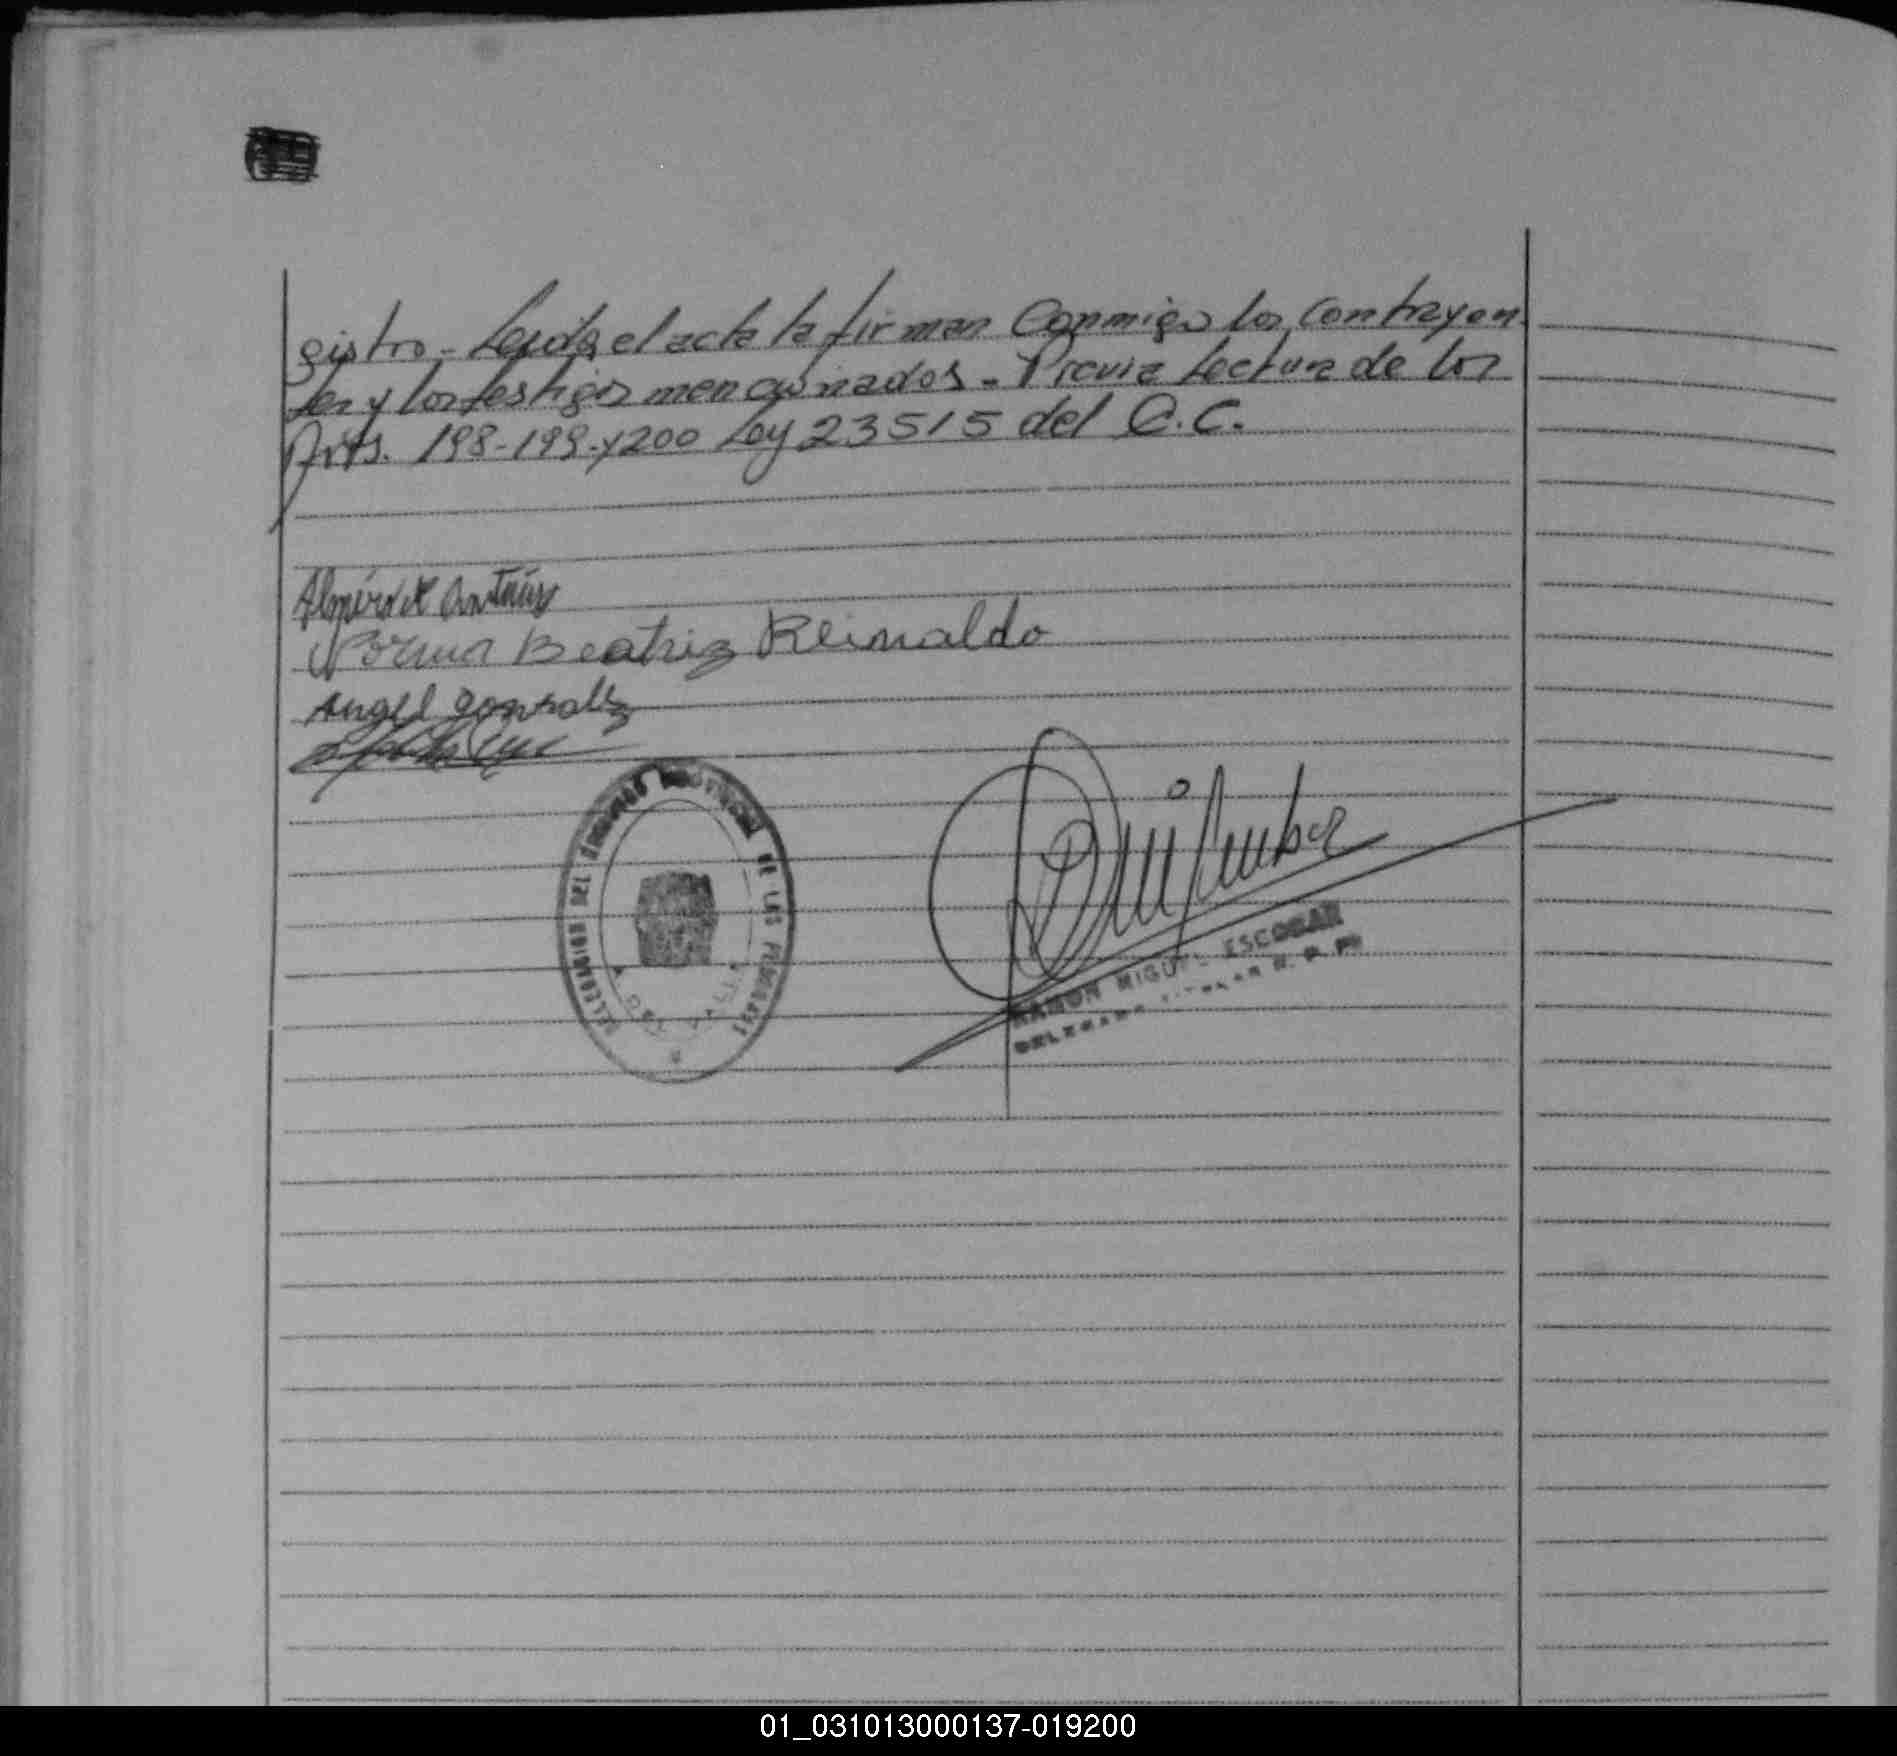 gistro. Leida el acta la firman Conmigo los Contrayen
tes y los testigos mencionados - Previa Lectura de los
Arts. 198-199-y200 Ley 23515 del C.C.
Norma Beatriz Reinaldo
Angel Gonzalez
DEL DE LAS PERSONAS
RAMON MIGUEL ESCOBAR
DELEGADO TITULAR R. P. P.
01_031013000137-019200